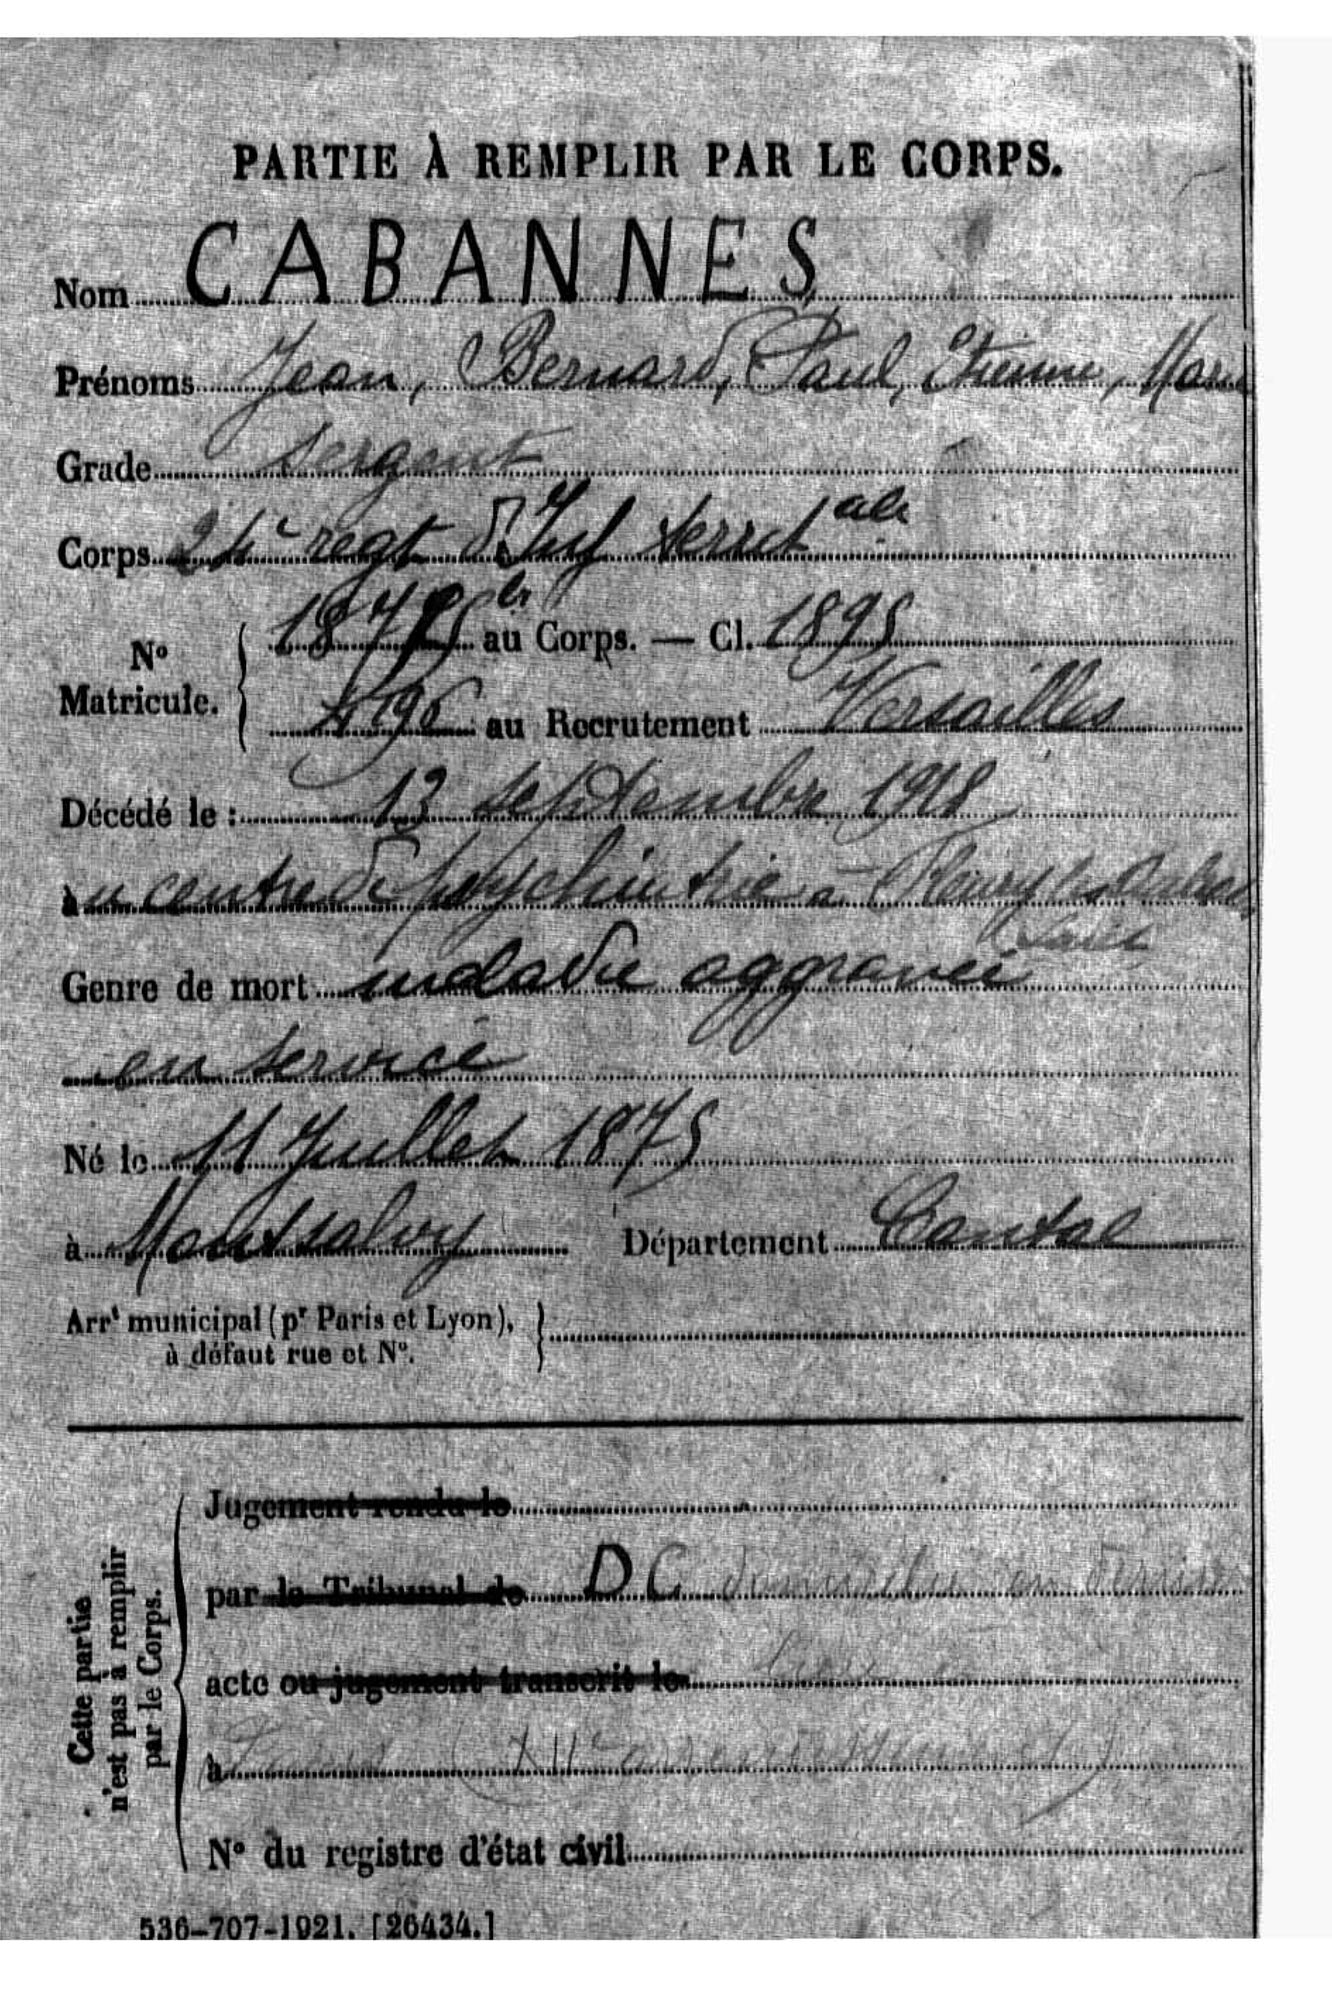 PARTIE À REMPLIR PAR LE CORPS.
Nom CABANNES
Prénoms Jean, Bernard, Paul, Etienne, Marie
Grade Sergent
Corps 24e regt d'Inf territale
N° Matricule. au Corps. — Cl. 1895
4196 au Recrutement Versailles
Décédé le : 13 septembre 1918
au centre de psychiatrie à Fleury les Aubrais
Loiret
Genre de mort maladie aggravée
en service
Né le 11 Juillet 1875
à Montsalvy Département Cantal
Arrt municipal (pr Paris et Lyon),
à défaut rue et N°.
Cette partie
n'est pas à remplir
par le Corps.
Jugement rendu le
par le Tribunal de DC domicilié en dernier
acte ou jugement transcrit le lieu
à Paris (XIIe arrondissement)
N° du registre d'état civil
536-707-1921. [26434.]